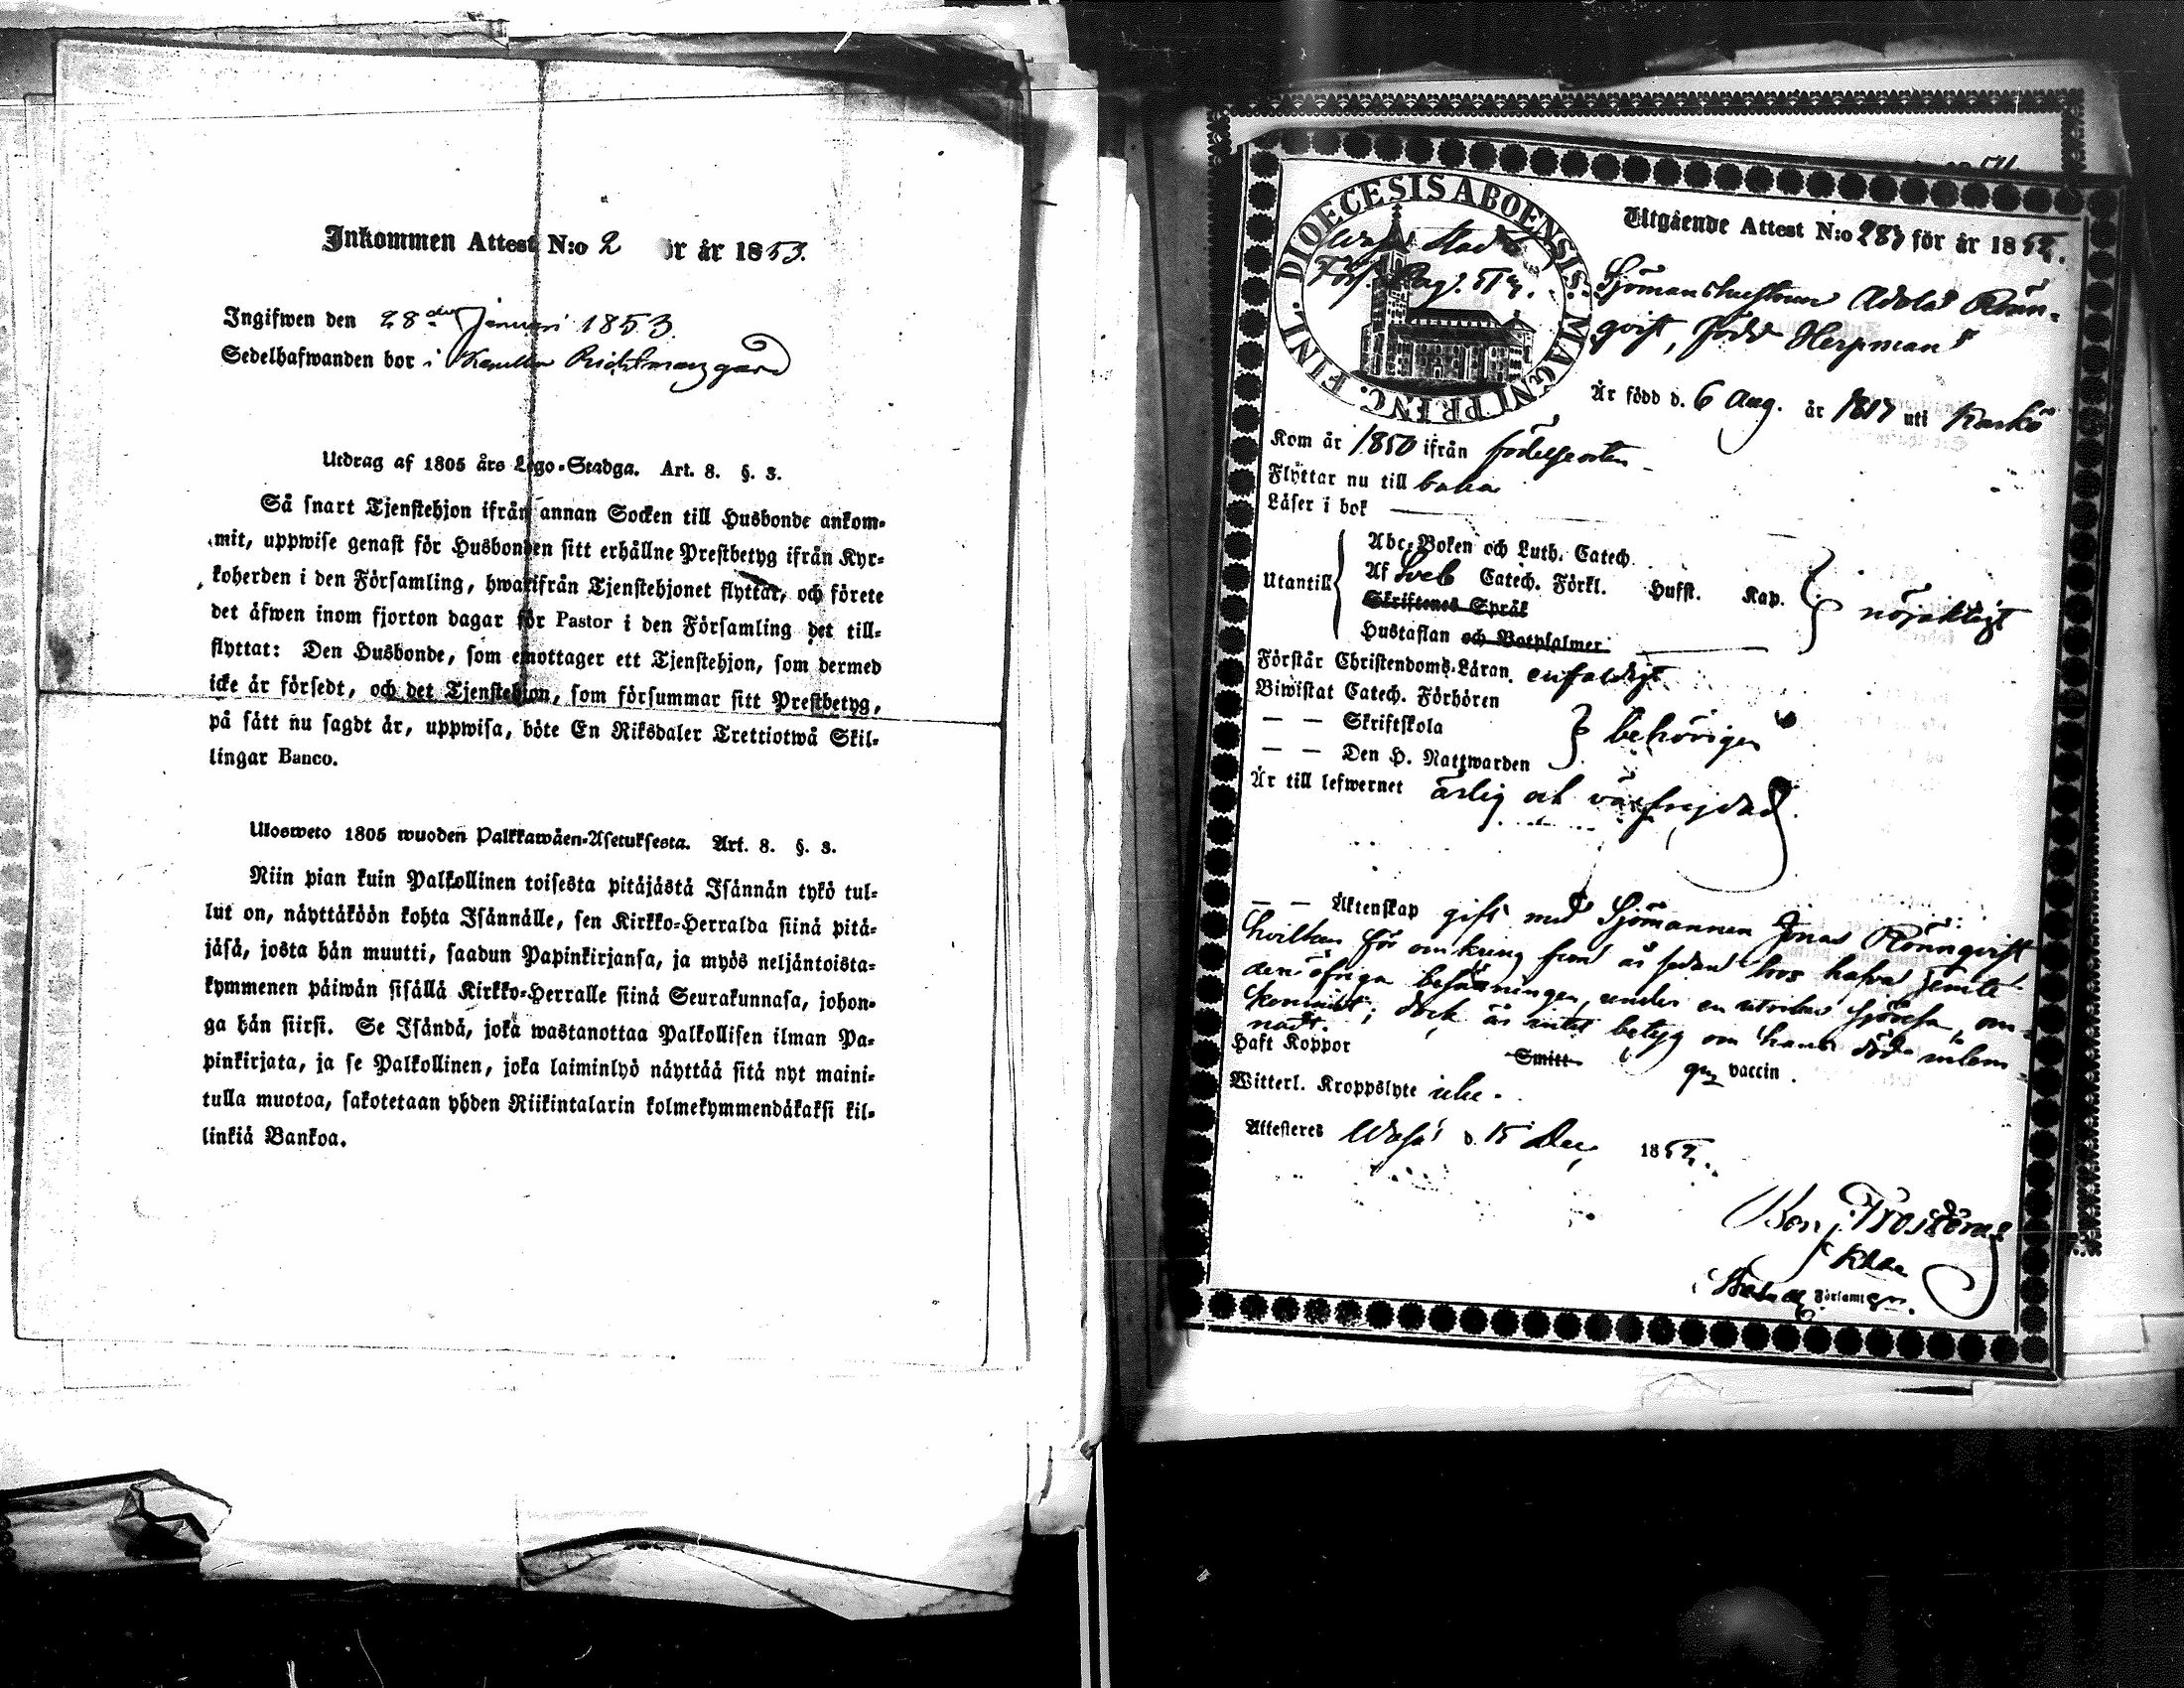 Inkommen Attest N:o 2 ör år 1853.
Ingifwen den 28de Januari 1853.
Sedelhafwanden bor i gård
Utdrag af 1805 års Lego-Stadga. Art. 8. §. 3.
Så snart Tjenstehjon ifrån annan Socken till Husbonde ankom-
mit, uppwise genast för Husbonden sitt erhållne Prestbetyg ifrån Kyr-
koherden i den Församling, hwarifrån Tjenstehjonet flyttar, och förete
det äfwen inom fjorton dagar för Pastor i den Församling det till-
flyttat: Den Husbonde, som emottager ett Tjenstehjon, som dermed
icke är försedt, och det Tjenstehjon, som försummar sitt Prestbetyg,
på sätt nu sagdt är, uppwisa, böte En Riksdaler Trettiotwå Skil-
lingar Banco.
Ulosweto 1805 wuoden Palkkawäen-Asetuksesta. Art. 8. §. 3.
Niin pian kuin Palkollinen toisesta pitäjästä Isännän tykö tul-
lut on, näyttäköön kohta Isännälle, sen Kirkko-Herralda siinä pitä-
jäsä, josta hän muutti, saadun Papinkirjansa, ja myös neljäntoista-
kymmenen päiwän sisällä Kirkko-Herralle siinä Seurakunnasa, johon-
ga hän siirsi. Se Isändä, joka wastanottaa Palkollisen ilman Pa-
pinkirjata, ja se Palkollinen, joka laiminlyö näyttää sitä nyt maini-
tulla muotoa, sakotetaan yhden Riikintalarin kolmekymmendäkaksi kil-
linkiä Bankoa.
DIOECESIS ABOENSIS. MAGNI PRINC. FINL.
Wasa Stads
Förs. Pag.
Utgående Attest N:o 287 för år 1852.
Sjömanshustrun Adola Rönn-
qvist, född Herpman
Är född d. 6 Aug. år 1817 uti Kaskö
Kom år 1850 ifrån födelseorten
Flyttar nu till baka
Läser i bok
Utantill
Abc-Boken och Luth. Catech.
Af Sveb Catech. Förkl. Husst. Kap.
Skriftenes Språk
Hustaflan och Botpsalmer
nöjaktigt
Förstår Christendoms-Läran enfaldigt
Biwistat Catech. Förhören
— — Skriftskola
— — Den H. Nattwarden
behörigen
Är till lefwernet ärlig och välfrejdad.
— — Äktenskap gift med Sjömannen Jonas Rönnqvist
hvilken för omkring fem år sedan tros hafva jemte
den öfriga besättningen, under en utrikes sjöresa, om-
kommit; dock är intet betyg om hans död inlem-
nadt.
Haft Koppor Smitt vaccin.
Witterl. Kroppslyte icke.
Attesteras Wasa d. 15 Dec 1852.
Benj. Frosterus
Församl